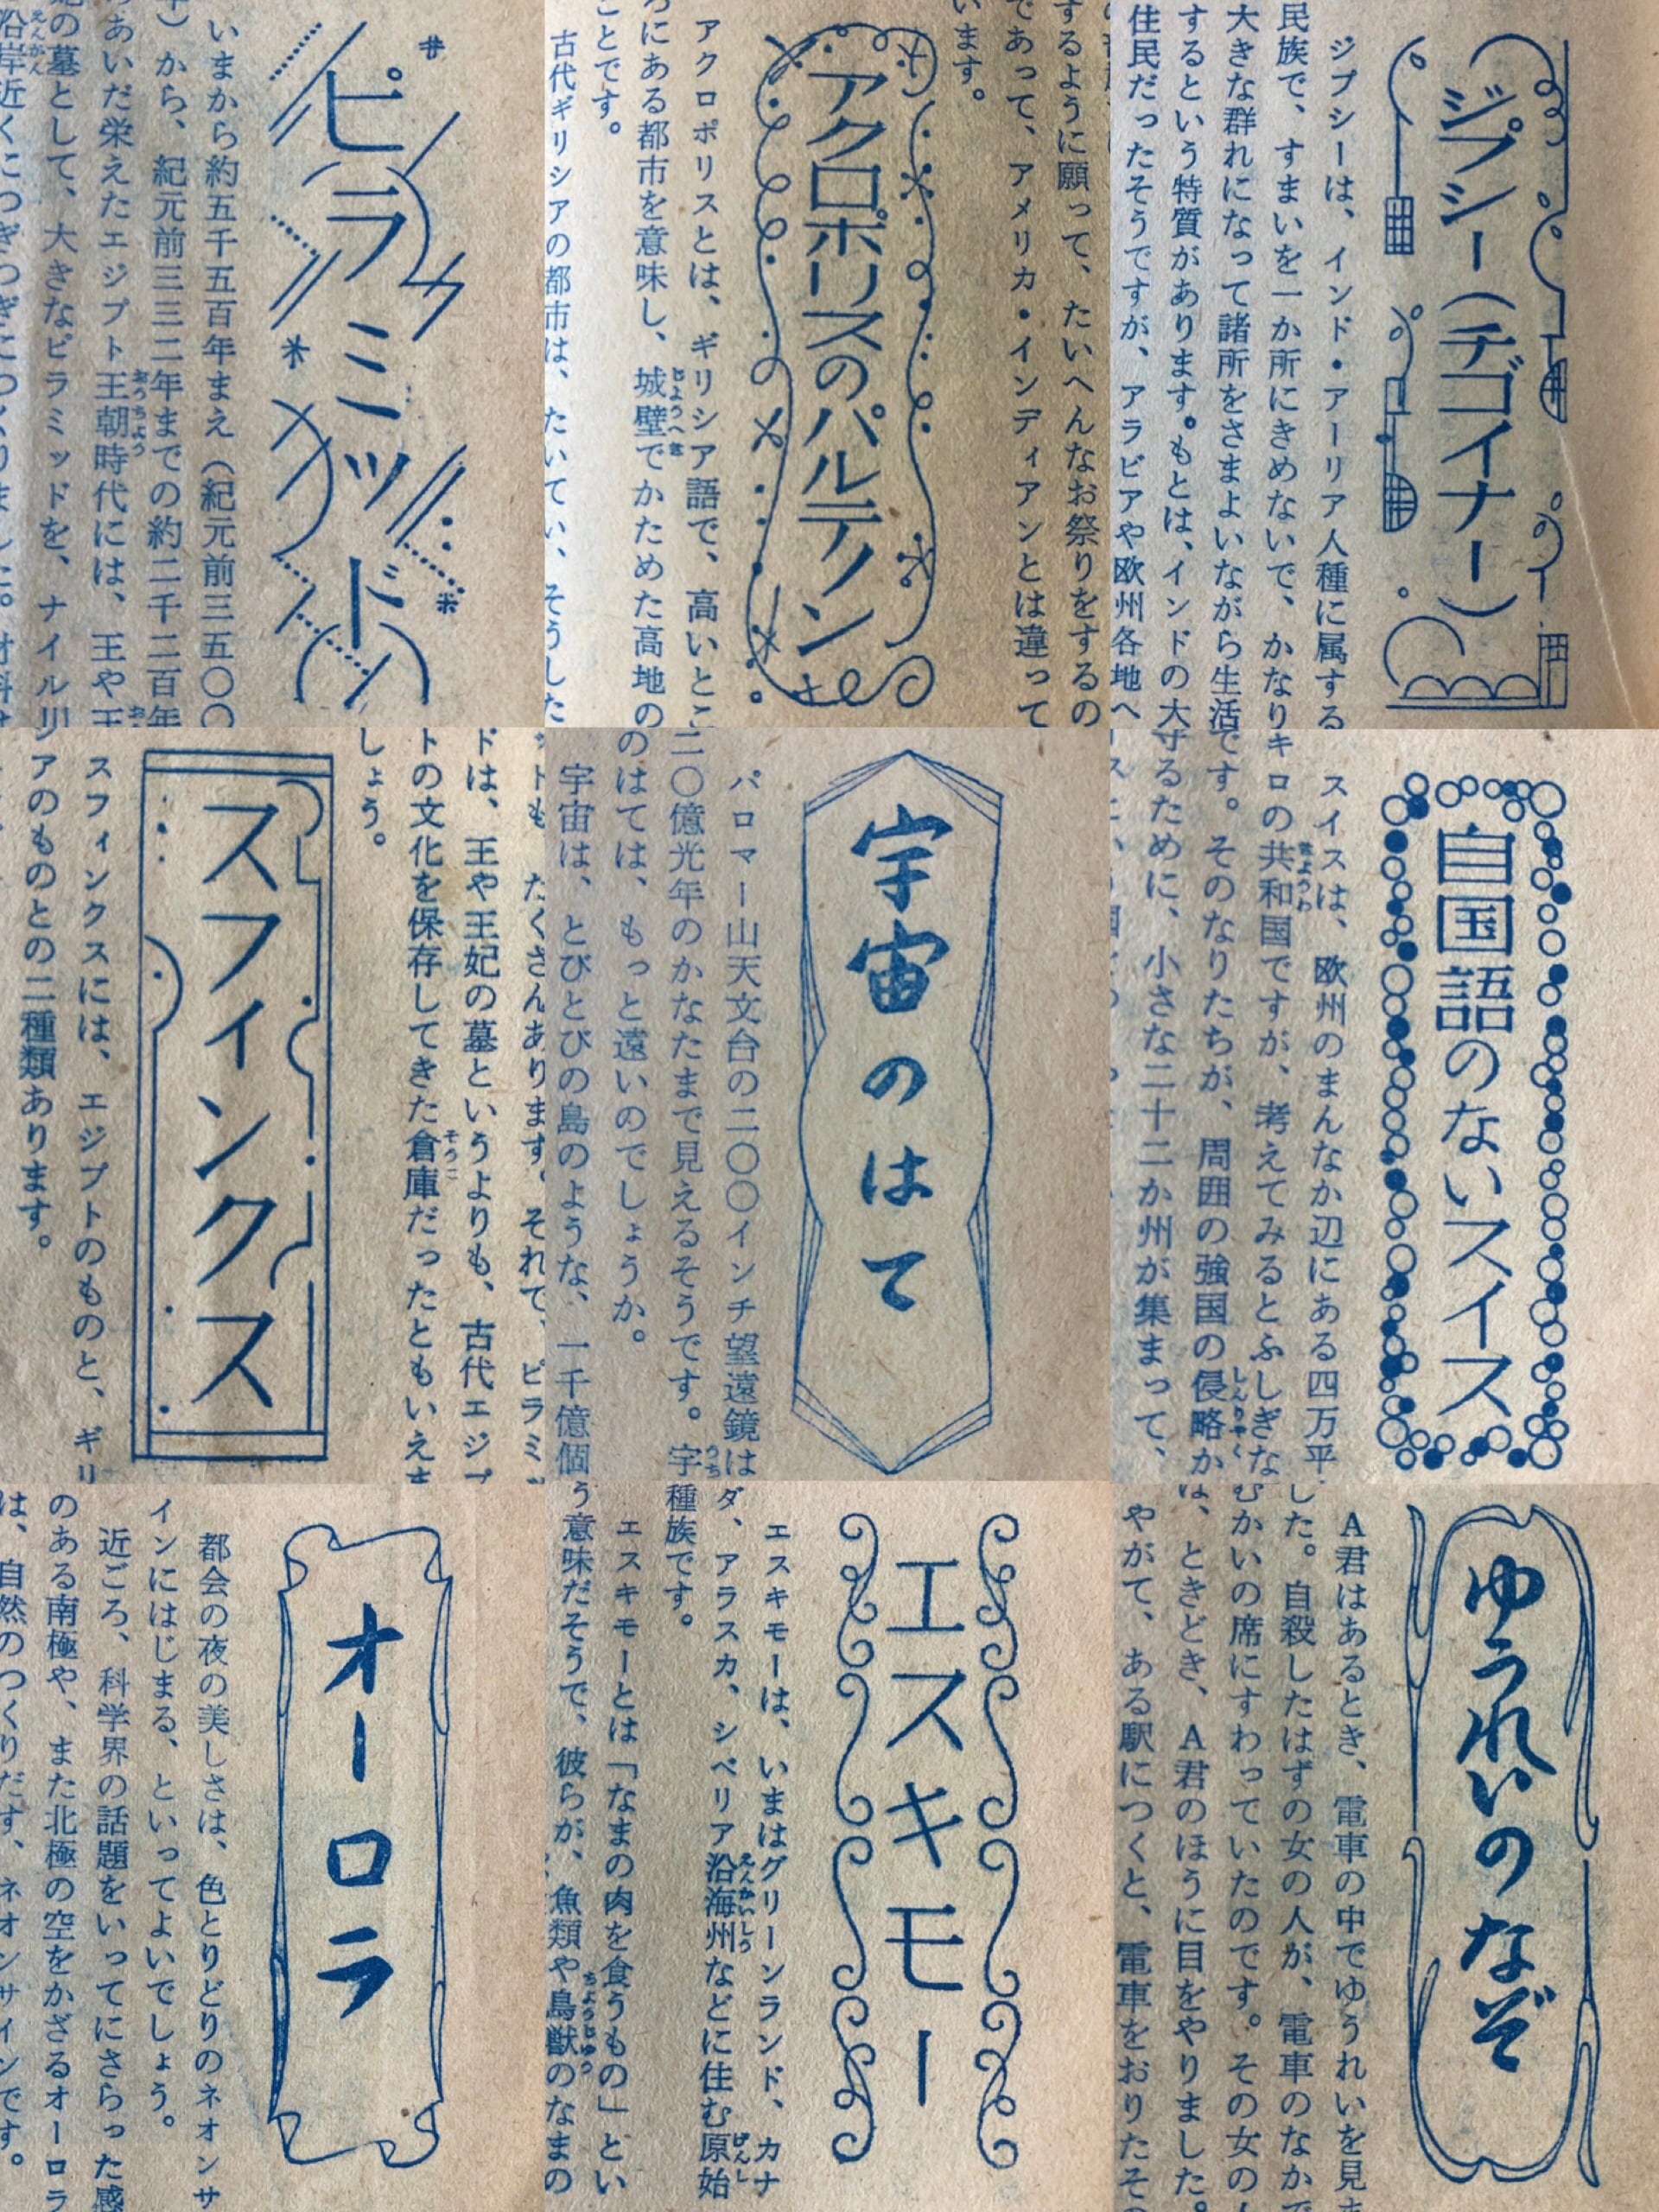 ピラミッド
いまから約五千五百年まえ（紀元前三五〇〇
から、紀元前三三二年までの約二千二百年
あいだ栄えたエジプト王朝時代には、王や王
の墓として、大きなピラミッドを、ナイル川
沿岸近くにつぎつぎにつくりました。材料は
います。
であって、アメリカ・インディアンとは違って
するように願って、たいへんなお祭りをするの
アクロポリスのパルテノン
アクロポリスとは、ギリシア語で、高いとこ
ろにある都市を意味し、城壁でかためた高地の
ことです。
古代ギリシアの都市は、たいてい、そうした
ジプシー（チゴイナー）
ジプシーは、インド・アーリア人種に属する
民族で、すまいを一か所にきめないで、かなり
大きな群れになって諸所をさまよいながら生活
するという特質があります。もとは、インドの大
住民だったそうですが、アラビアや欧州各地へ
ットも、たくさんあります。それで、ピラミッ
ドは、王や王妃の墓というよりも、古代エジプ
トの文化を保存してきた倉庫だったともいえま
しょう。
スフィンクス
スフィンクスには、エジプトのものと、ギリ
アのものとの二種類あります。
宇宙のはて
パロマー山天文台の二〇〇インチ望遠鏡は
二〇億光年のかなたまで見えるそうです。宇
のはては、もっと遠いのでしょうか。
宇宙は、とびとびの島のような、一千億個
自国語のないスイス
スイスは、欧州のまんなか辺にある四万平
キロの共和国ですが、考えてみるとふしぎな
です。そのなりたちが、周囲の強国の侵略か
守るために、小さな二十二か州が集まって、
オーロラ
都会の夜の美しさは、色とりどりのネオンサ
インにはじまる、といってよいでしょう。
近ごろ、科学界の話題をいってにさらった感
のある南極や、また北極の空をかざるオーロラ
は、自然のつくりだす、ネオンサインです。
エスキモー
エスキモーは、いまはグリーンランド、カナ
ダ、アラスカ、シベリア沿海州などに住む原始
種族です。
エスキモーとは「なまの肉を食うもの」とい
う意味だそうで、彼らが、魚類や鳥獣のなまの
ゆうれいのなぞ
A君はあるとき、電車の中でゆうれいを見ま
した。自殺したはずの女の人が、電車のなかで
むかいの席にすわっていたのです。その女の人
は、ときどき、A君のほうに目をやりました。
やがて、ある駅につくと、電車をおりたその